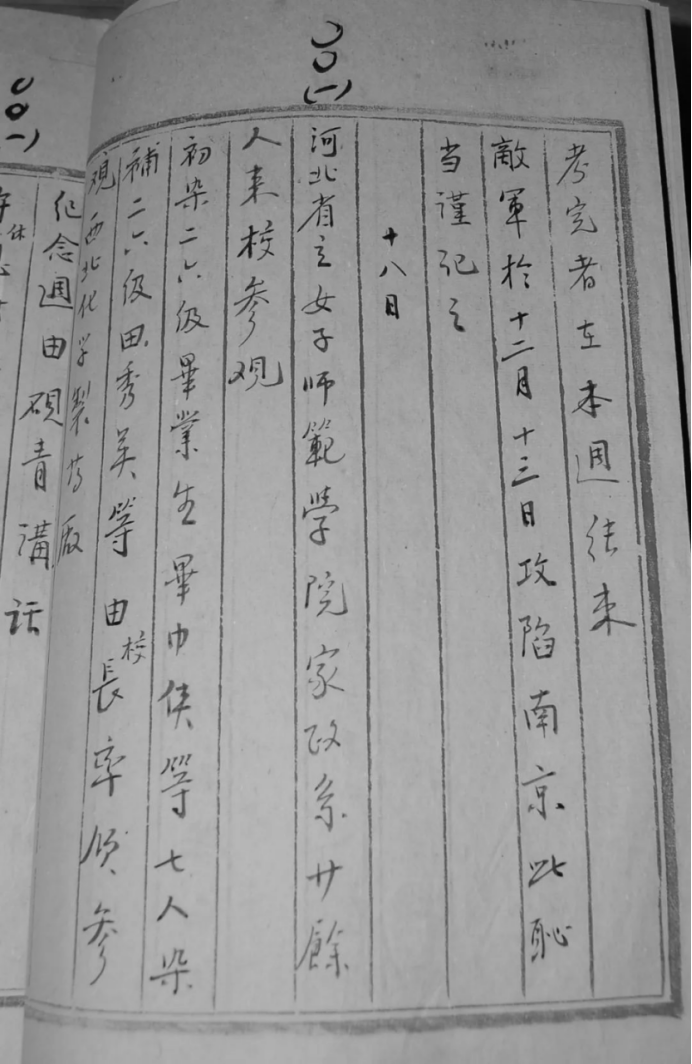 考完者在本週结束
敵軍於十二月十三日攻陷南京此恥
当謹记之
十八日
河北省立女子师範學院家政系廿餘
人来校参观
初染二六级畢業生畢巾侠等七人染
補二六级田秀英等由校長率领参
观西北化学製药厰
纪念週由砚青講话